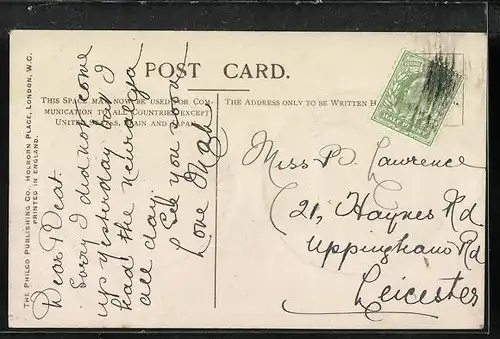 POST CARD.
THIS SPACE MAY NOW BE USED FOR COM-
MUNICATION TO ALL COUNTRIES EXCEPT
UNITED STATES, SPAIN AND JAPAN.
THE ADDRESS ONLY TO BE WRITTEN H
THE PHILCO PUBLISHING CO., HOLBORN PLACE, LONDON, W.C.
PRINTED IN ENGLAND.
Dear
Sorry I did not come
up yesterday but I
had the newralgia
all day.
See you soon
Love
Miss D. Lawrence
21, Haynes Rd
Uppingham Rd
Leicester
HALF